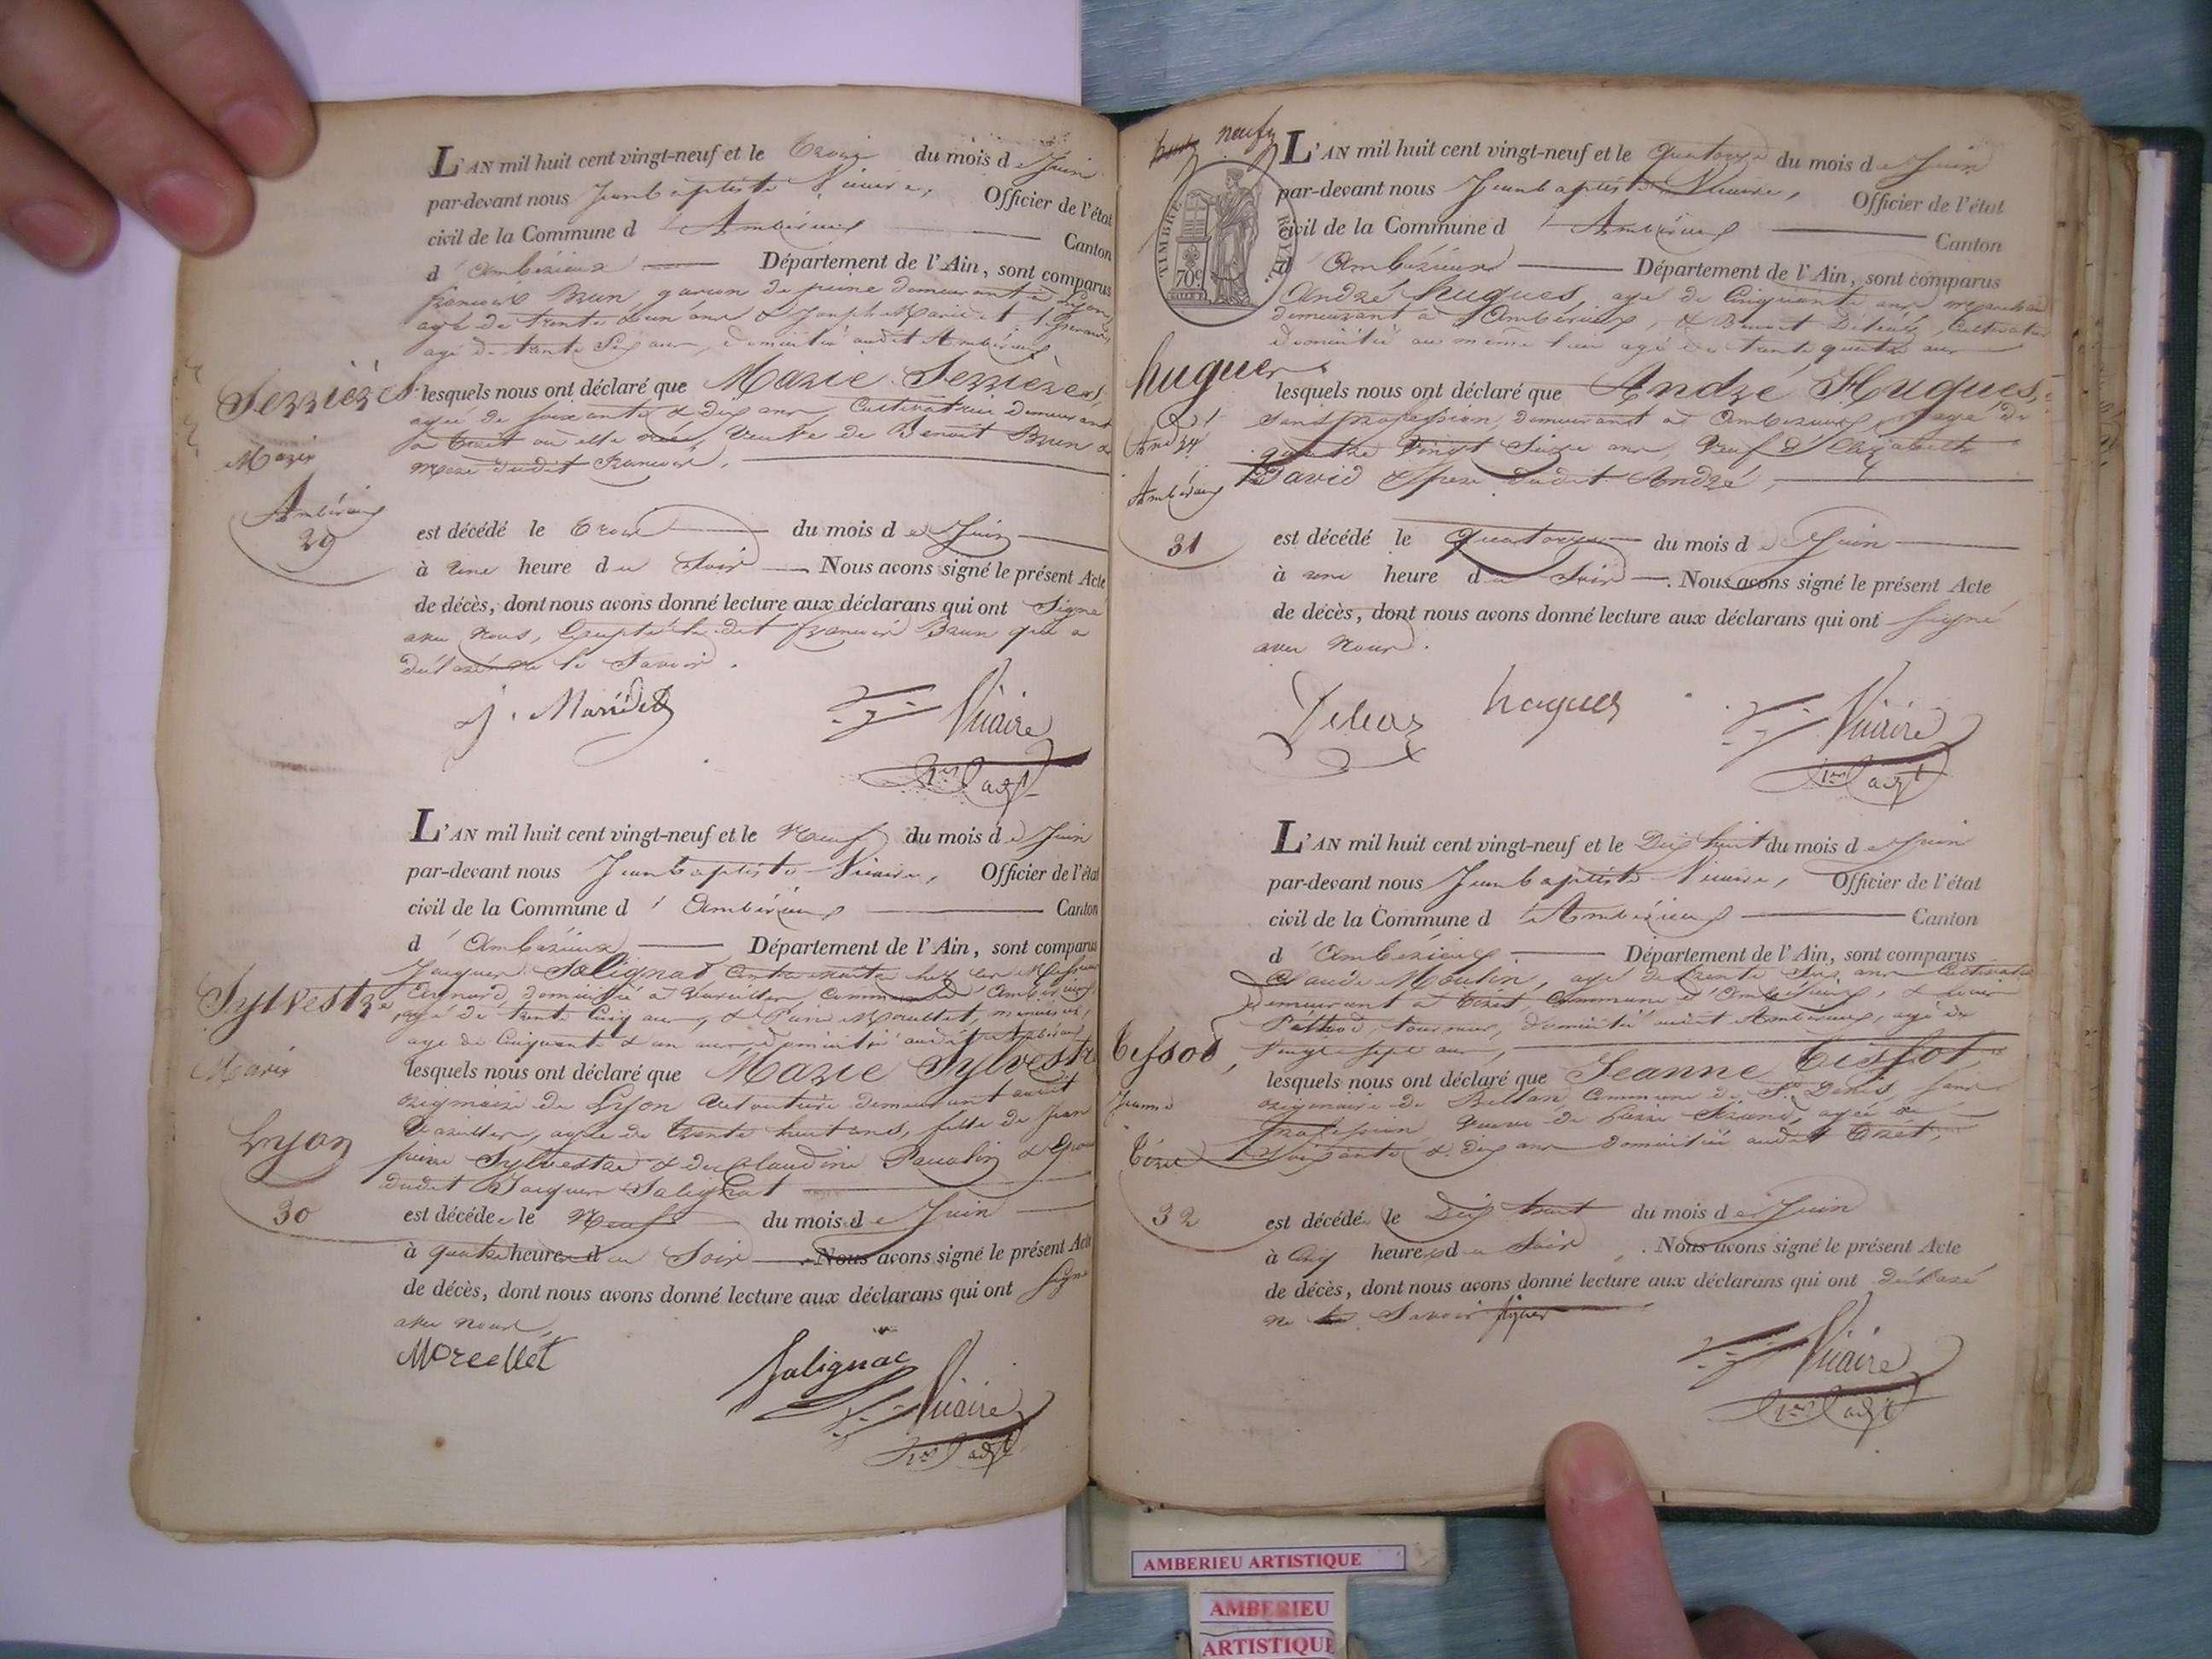 L'AN mil huit cent vingt-neuf et le trois du mois de Juin
par-devant nous Jean baptiste Vicaire, Officier de l'état
civil de la Commune d'Ambérieux Canton
d'Ambérieux Département de l'Ain, sont comparus
françois Brun, garçon de peine demeurant à Lyon,
agé de trente & un ans & Joseph Marie
agé de trente Six ans, domicilié audit Ambérieux,
Serrières
lesquels nous ont déclaré que Marie Serrières,
agée de soixante & dix ans, Cultivatrice demeurant
à tiret ou elle née, Veuve de Benoit Brun &
Marie
mere dudit françois.
Ambérieux
29
est décédé le trois du mois de Juin
à une heure du Soir Nous avons signé le présent Acte
de décès, dont nous avons donné lecture aux déclarans qui ont Signé
avec nous, Excepté le dit françois Brun qui a
déclaré ne le Savoir.
Vicaire
L'AN mil huit cent vingt-neuf et le Neuf du mois de Juin
par-devant nous Jean baptiste Vicaire, Officier de l'état
civil de la Commune d'Ambérieux Canton
d'Ambérieux Département de l'Ain, sont comparus
Jacques Salignat Contremaitre chez les Messieurs
domicilié à Vareilles, Commune d'Ambérieux,
Sylvestre
agé de trente Cinq ans, &
agé de Cinquante & un ans, domicilié audit Ambérieux,
Marie
lesquels nous ont déclaré que Marie Sylvestre
originaire de Lyon demeurant audit
Vareilles, agée de trente huit ans, fille de Jean
Lyon
pierre Sylvestre & de Claudine &
dudit Jacques Salignat
30
est décédée le Neuf du mois de Juin
à quatre heures du Soir Nous avons signé le présent Acte
de décès, dont nous avons donné lecture aux déclarans qui ont Signé
avec nous,
Morellet
Salignac
Vicaire
neuf
TIMBRE ROYAL
70c
L'AN mil huit cent vingt-neuf et le quatorze du mois de Juin
par-devant nous Jean baptiste Vicaire, Officier de l'état
civil de la Commune d'Ambérieux Canton
d'Ambérieux Département de l'Ain, sont comparus
André hugues, agé de Cinquante ans,
demeurant à Ambérieux, & Benoit Cultivateur
domicilié au même lieu agé de trente quatre ans
hugues
lesquels nous ont déclaré que André Hugues,
Sans profession, demeurant à Ambérieux, agé de
André
quatre Vingt Seize ans, Veuf d'Elizabeth
David & pere dudit André,
Ambérieux
31
est décédé le quatorze du mois de Juin
à une heure du Soir. Nous avons signé le présent Acte
de décès, dont nous avons donné lecture aux déclarans qui ont Signé
avec nous.
hugues
Vicaire
L'AN mil huit cent vingt-neuf et le Dix huit du mois de Juin
par-devant nous Jean baptiste Vicaire, Officier de l'état
civil de la Commune d'Ambérieux Canton
d'Ambérieux Département de l'Ain, sont comparus
Claude Moulin, agé de trente Six ans Cultivateur
demeurant à tiret Commune d'Ambérieux, &
tourneur, domicilié audit Ambérieux, agé de
Tissot,
Vingt sept ans,
lesquels nous ont déclaré que Jeanne Tissot,
Jeanne
originaire de Bettan Commune de St Denis, sans
profession Veuve de agée de
Soixante & dix ans domiciliée audit tiret,
32
est décédée le Dix huit du mois de Juin
à Cinq heures du Soir. Nous avons signé le présent Acte
de décès, dont nous avons donné lecture aux déclarans qui ont déclaré
ne Savoir signer
Vicaire
AMBERIEU ARTISTIQUE
AMBERIEU
ARTISTIQUE